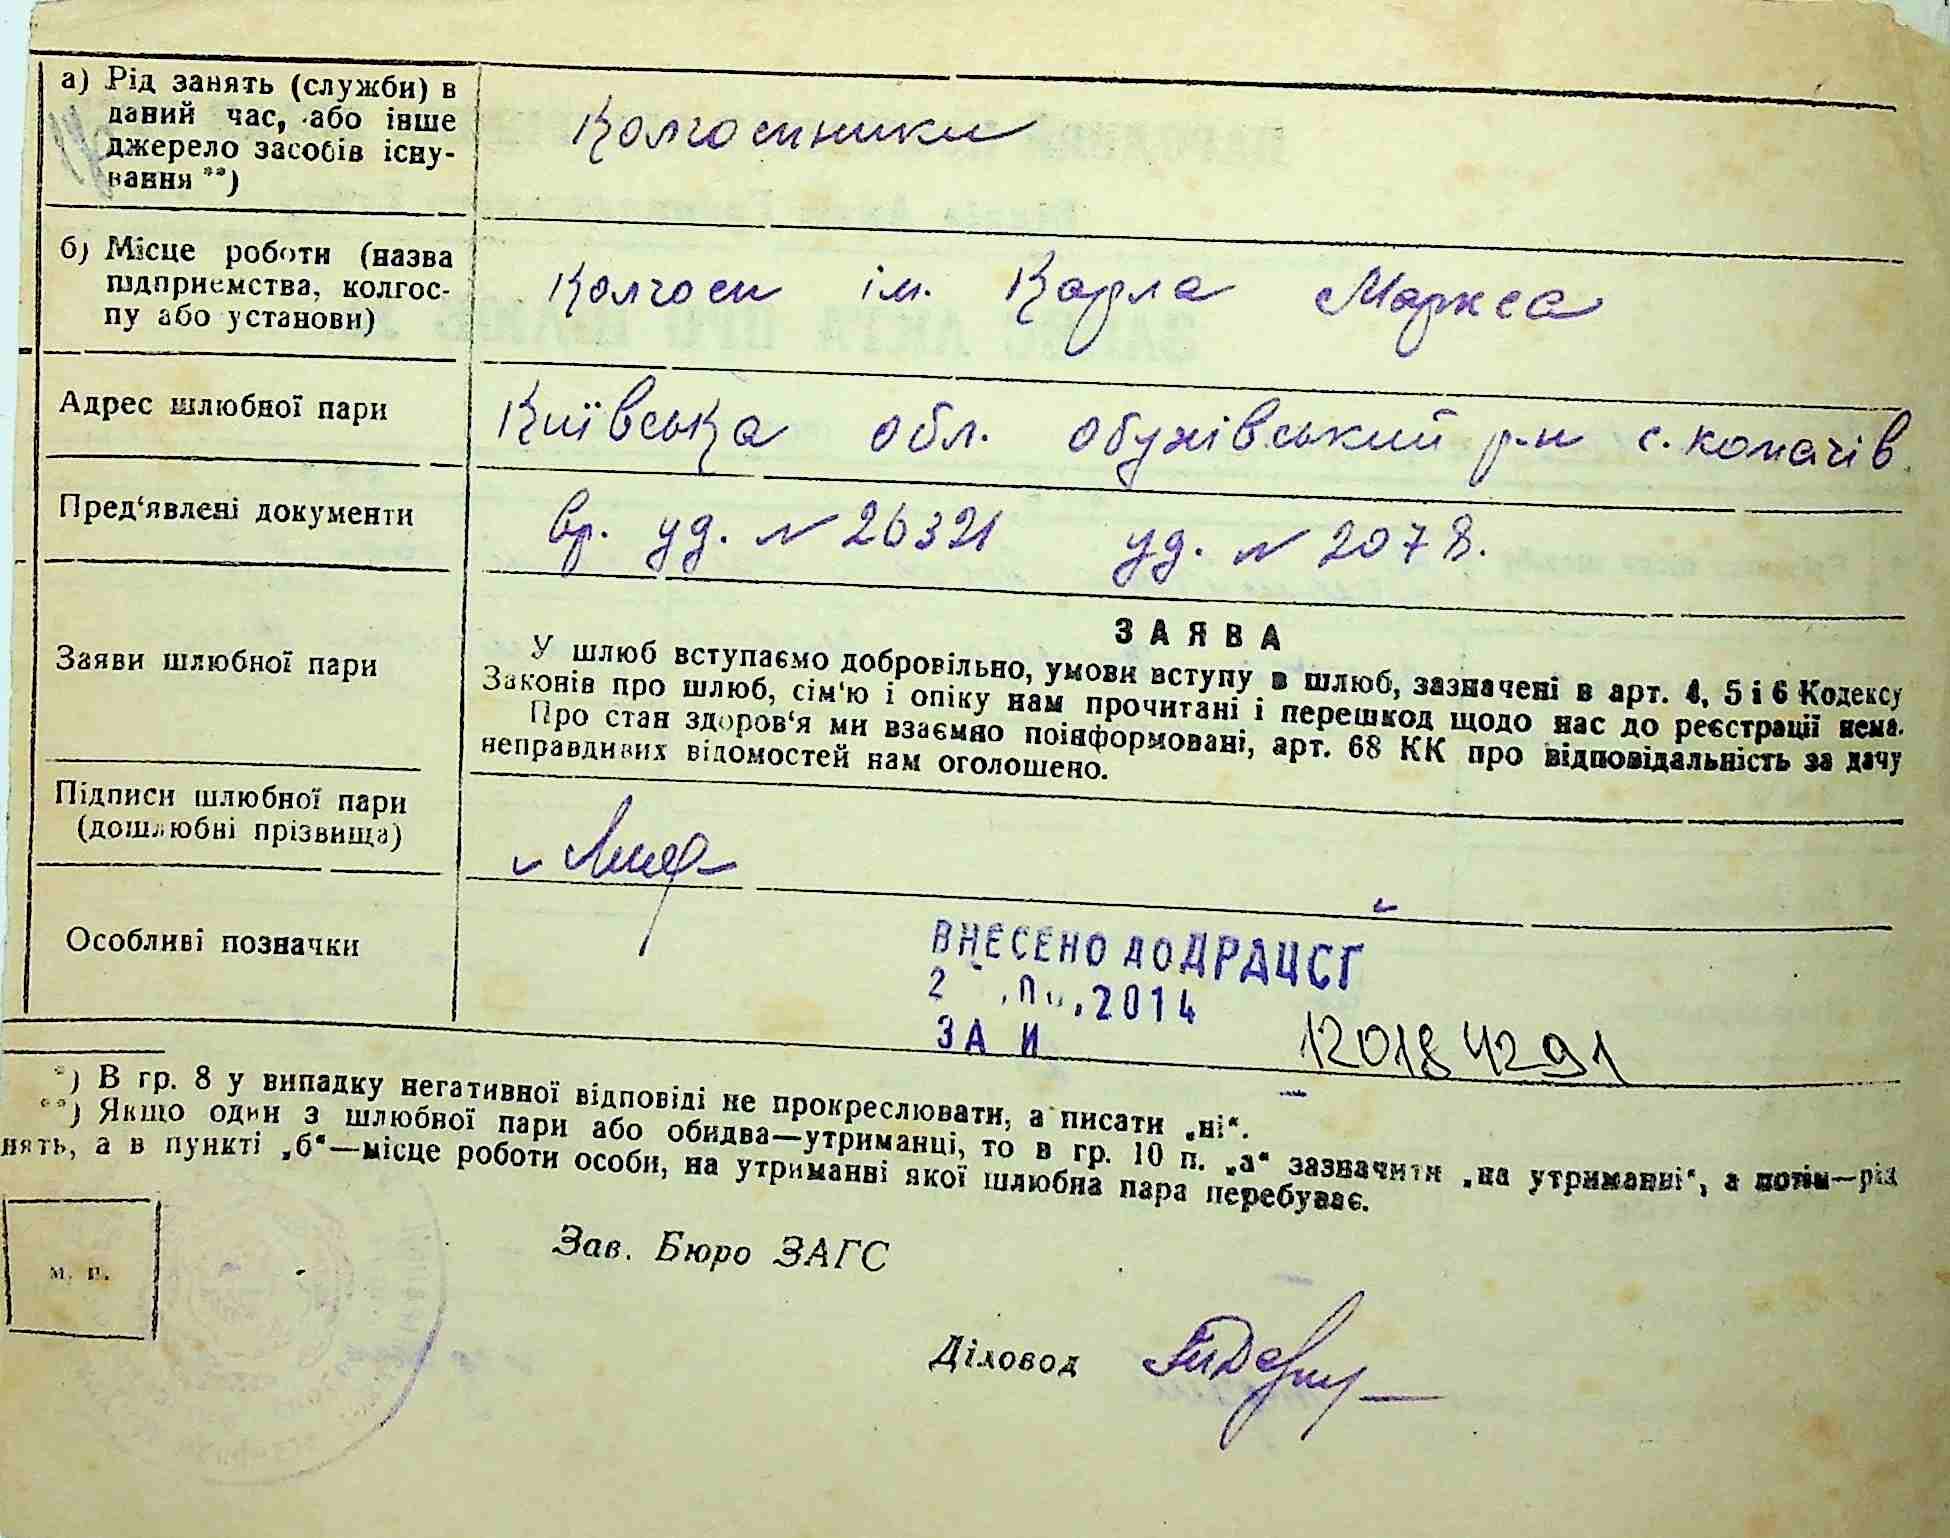 а) Рід занять (служби) в
даний час, або інше
джерело засобів існу-
вання **)
Колгоспники
б) Місце роботи (назва
підприємства, колгос-
пу або установи)
Колгосп ім. Карла Маркса
Адрес шлюбної пари
Київська обл. обухівський р-н с. копачів
Пред‘явлені документи
вр. уд. № 26321 уд. № 2078.
Заяви шлюбної пари
ЗАЯВА
У шлюб вступаємо добровільно, умови вступу в шлюб, зазначені в арт. 4, 5 і 6 Кодексу
Законів про шлюб, сім‘ю і опіку нам прочитані і перешкод щодо нас до реєстрації нема.
Про стан здоров‘я ми взаємно поінформовані, арт. 68 КК про відповідальність за дачу
неправдивих відомостей нам оголошено.
Підписи шлюбної пари
(дошлюбні прізвища)
Особливі позначки
ВНЕСЕНО ДО ДРАЦСГ
2014
ЗА И 120184291
*) В гр. 8 у випадку негативної відповіді не прокреслювати, а писати „ні“.
**) Якщо один з шлюбної пари або обидва—утриманці, то в гр. 10 п. „а“ зазначити „на утриманні“, а потім—рід
нять, а в пункті „б“—місце роботи особи, на утриманні якої шлюбна пара перебуває.
м. п.
Зав. Бюро ЗАГС
Діловод